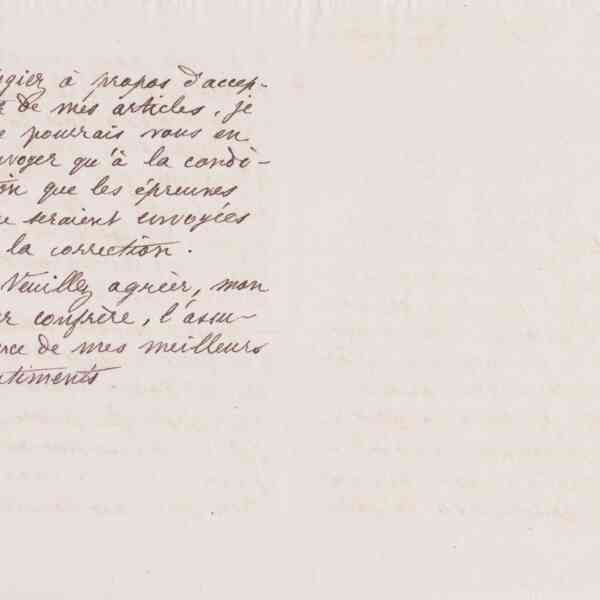 à propos d'accep-
de mes articles, je
pourrais vous en
voyer qu'à la condi-
on que les épreuves
seraient envoyées
la correction.
Veuillez agréer, mon
er confrère, l'assu-
nce de mes meilleurs
ntiments